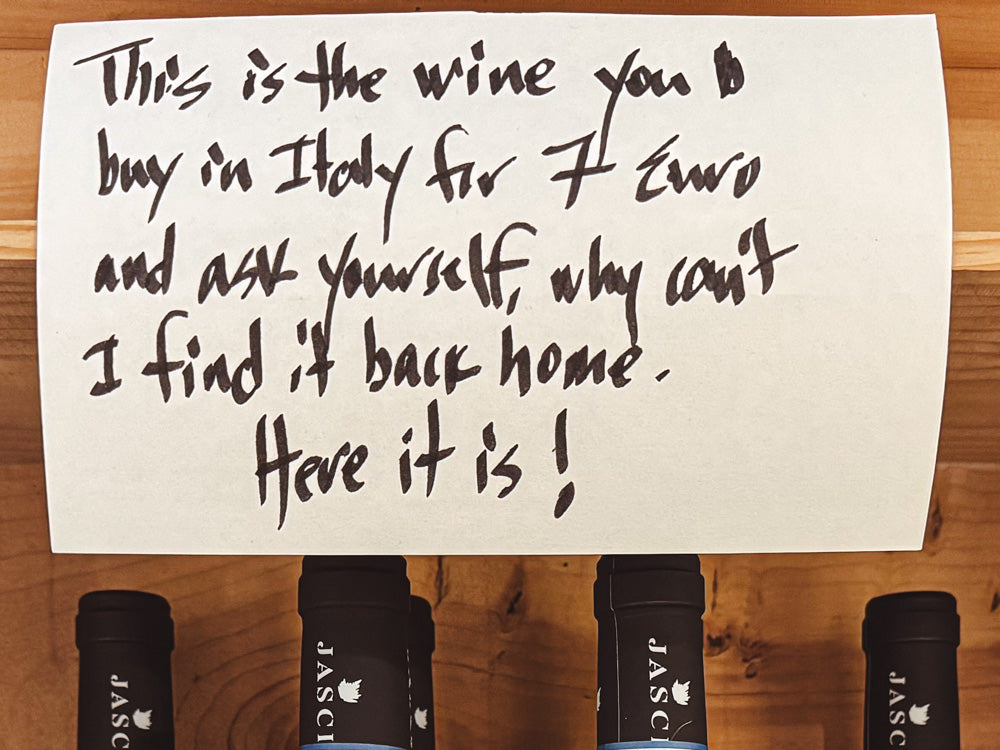 This is the wine you b
buy in Italy for 7 Euro
and ask yourself, why can't
I find it back home.
Here it is!
JASCI
JASCI
JASCI
JASCI